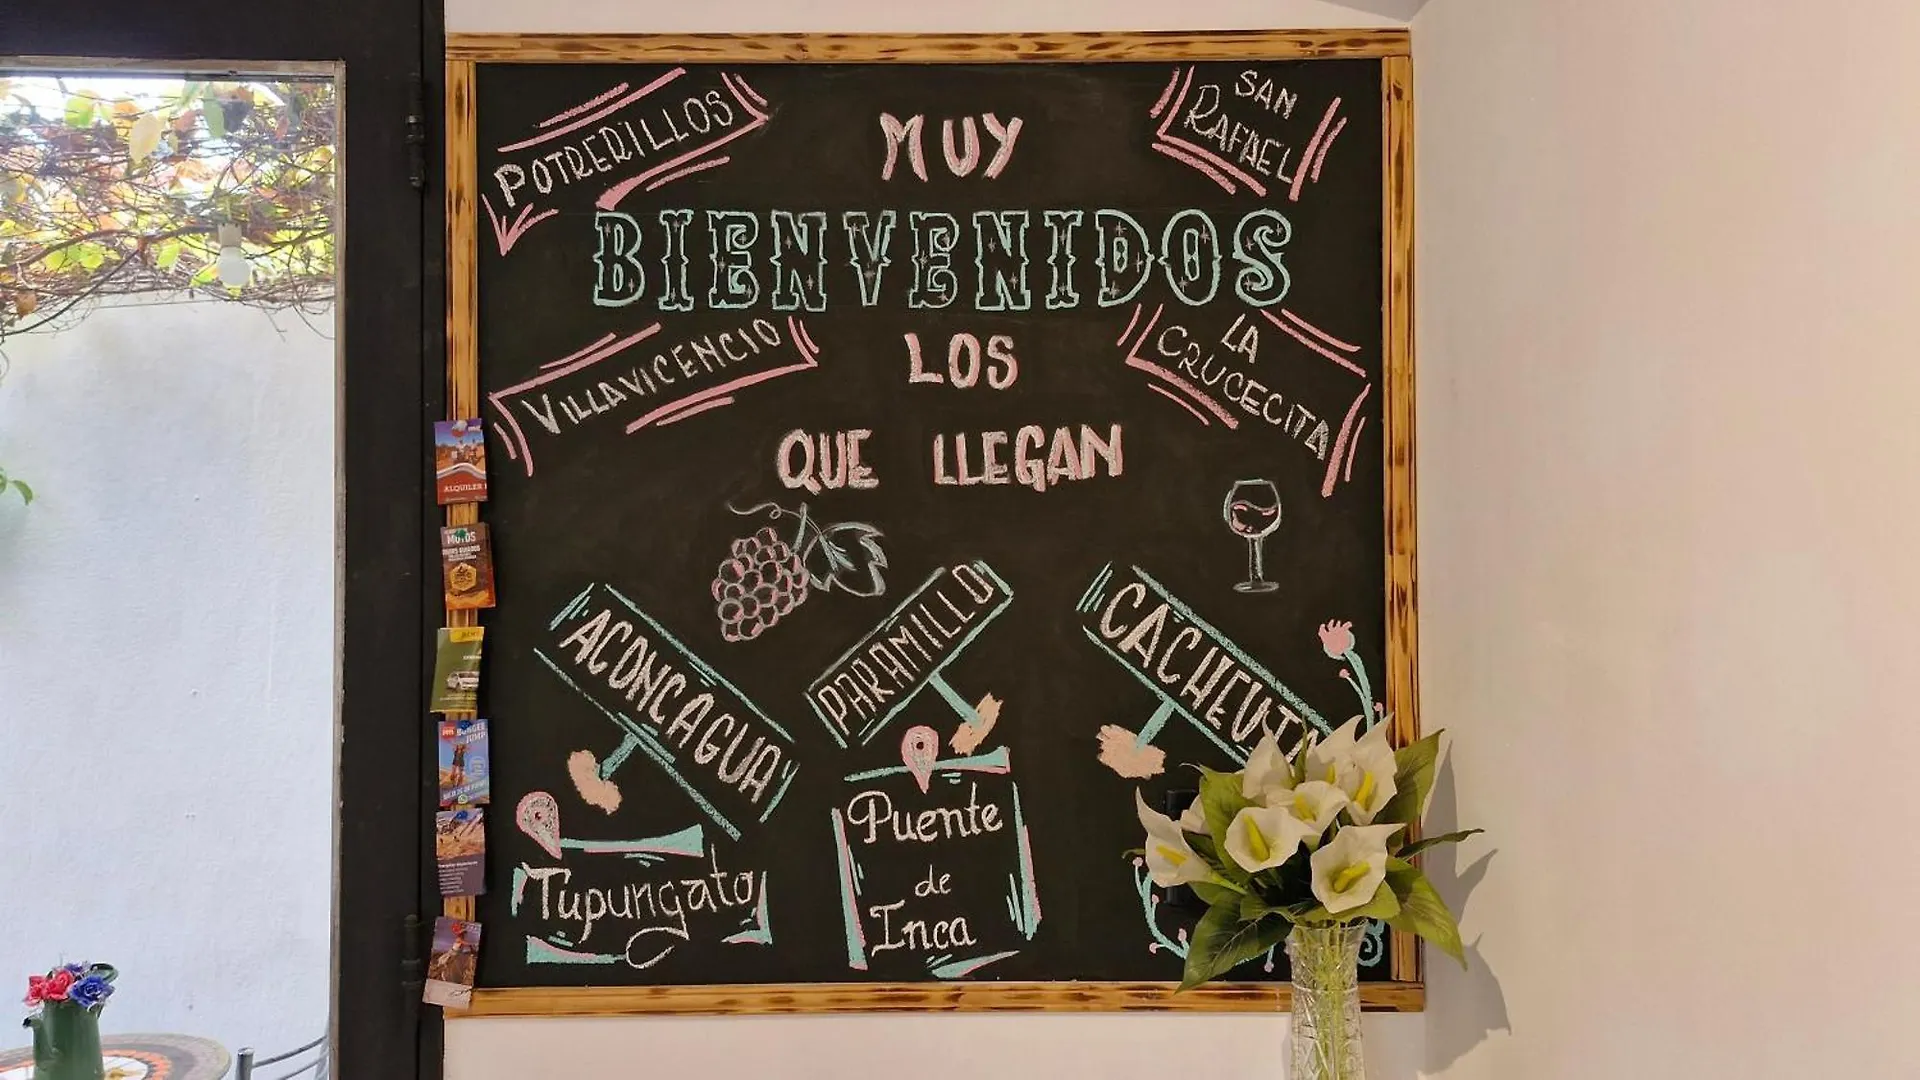 POTRERILLOS
MUY
SAN
RAFAEL
BIENVENIDOS
VILLAVICENCIO
LOS
LA
CRUCECITA
QUE LLEGAN
ACONCAGUA
PARAMILLO
CACHEUTA
Puente
de
Inca
Tupungato
ALQUILER
MOTOS
BUNGEE
JUMP